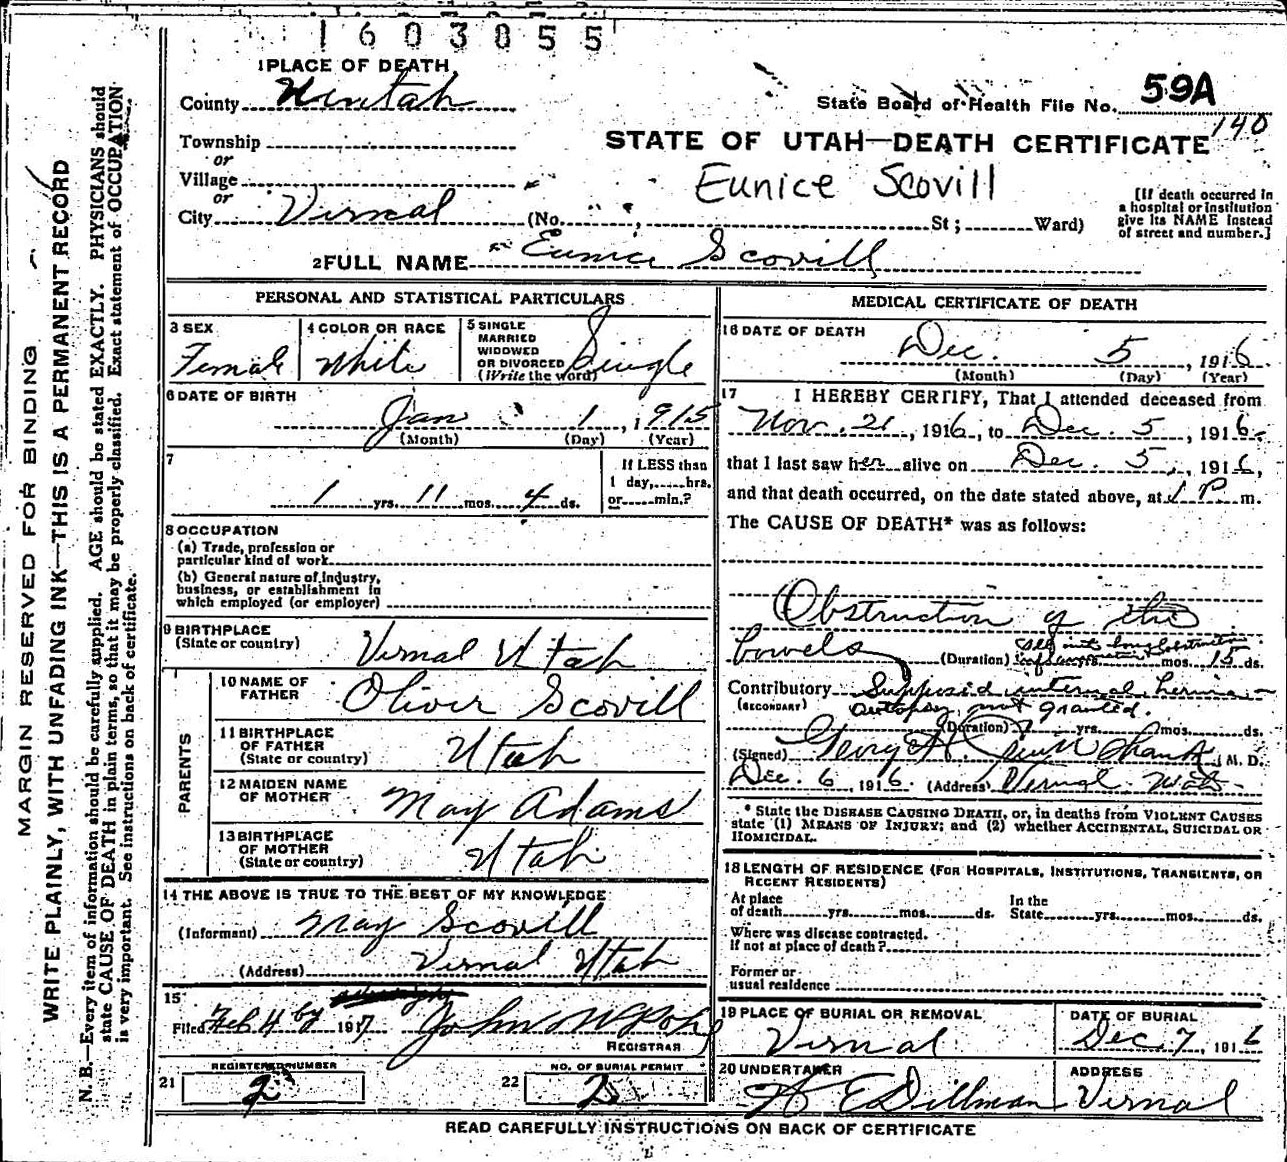 1603055
1 PLACE OF DEATH
County Uintah
State Board of Health File No. 59A
140
Township
or
Village
or
City Vernal (No. , St; Ward)
STATE OF UTAH—DEATH CERTIFICATE
Eunice Scovill
[If death occurred in
a hospital or institution
give its NAME instead
of street and number.]
2 FULL NAME Eunice Scovill
PERSONAL AND STATISTICAL PARTICULARS
3 SEX
Female
4 COLOR OR RACE
White
5 SINGLE
MARRIED
WIDOWED
OR DIVORCED
(Write the word)
Single
6 DATE OF BIRTH
Jan 1, 1915
(Month) (Day) (Year)
7
1 yrs. 11 mos. 4 ds.
If LESS than
1 day, hrs.
or min.?
8 OCCUPATION
(a) Trade, profession or
particular kind of work
(b) General nature of industry,
business, or establishment in
which employed (or employer)
9 BIRTHPLACE
(State or country)
Vernal Utah
PARENTS
10 NAME OF
FATHER
Oliver Scovill
11 BIRTHPLACE
OF FATHER
(State or country)
Utah
12 MAIDEN NAME
OF MOTHER
May Adams
13 BIRTHPLACE
OF MOTHER
(State or country)
Utah
14 THE ABOVE IS TRUE TO THE BEST OF MY KNOWLEDGE
(Informant) May Scovill
(Address) Vernal Utah
15
Filed Feb 4 1917 John
REGISTRAR
21 REGISTERED NUMBER
2
22 NO. OF BURIAL PERMIT
2
MEDICAL CERTIFICATE OF DEATH
16 DATE OF DEATH
Dec. 5, 1916
(Month) (Day) (Year)
17 I HEREBY CERTIFY, That I attended deceased from
Nov. 21, 1916, to Dec. 5, 1916.
that I last saw her alive on Dec. 5, 1916,
and that death occurred, on the date stated above, at 1 P m.
The CAUSE OF DEATH* was as follows:
Obstruction of the
bowels
(Duration) yrs. mos. 15 ds.
Contributory Supposed internal hernia—
(SECONDARY) autopsy not granted.
(Duration) ? yrs. ? mos. ds.
(Signed) George H. M. D.
Dec. 6, 1916 (Address) Vernal Utah
* State the DISEASE CAUSING DEATH, or, in deaths from VIOLENT CAUSES
state (1) MEANS OF INJURY; and (2) whether ACCIDENTAL, SUICIDAL OR
HOMICIDAL.
18 LENGTH OF RESIDENCE (FOR HOSPITALS, INSTITUTIONS, TRANSIENTS, OR
RECENT RESIDENTS)
At place
of death yrs. mos. ds.
In the
State yrs. mos. ds.
Where was disease contracted,
if not at place of death?
Former or
usual residence
19 PLACE OF BURIAL OR REMOVAL
Vernal
DATE OF BURIAL
Dec 7, 1916
20 UNDERTAKER
E Dillman
ADDRESS
Vernal
READ CAREFULLY INSTRUCTIONS ON BACK OF CERTIFICATE
MARGIN RESERVED FOR BINDING
WRITE PLAINLY, WITH UNFADING INK—THIS IS A PERMANENT RECORD
N. B.—Every item of information should be carefully supplied. AGE should be stated EXACTLY. PHYSICIANS should
state CAUSE OF DEATH in plain terms, so that it may be properly classified. Exact statement of OCCUPATION
is very important. See instructions on back of certificate.